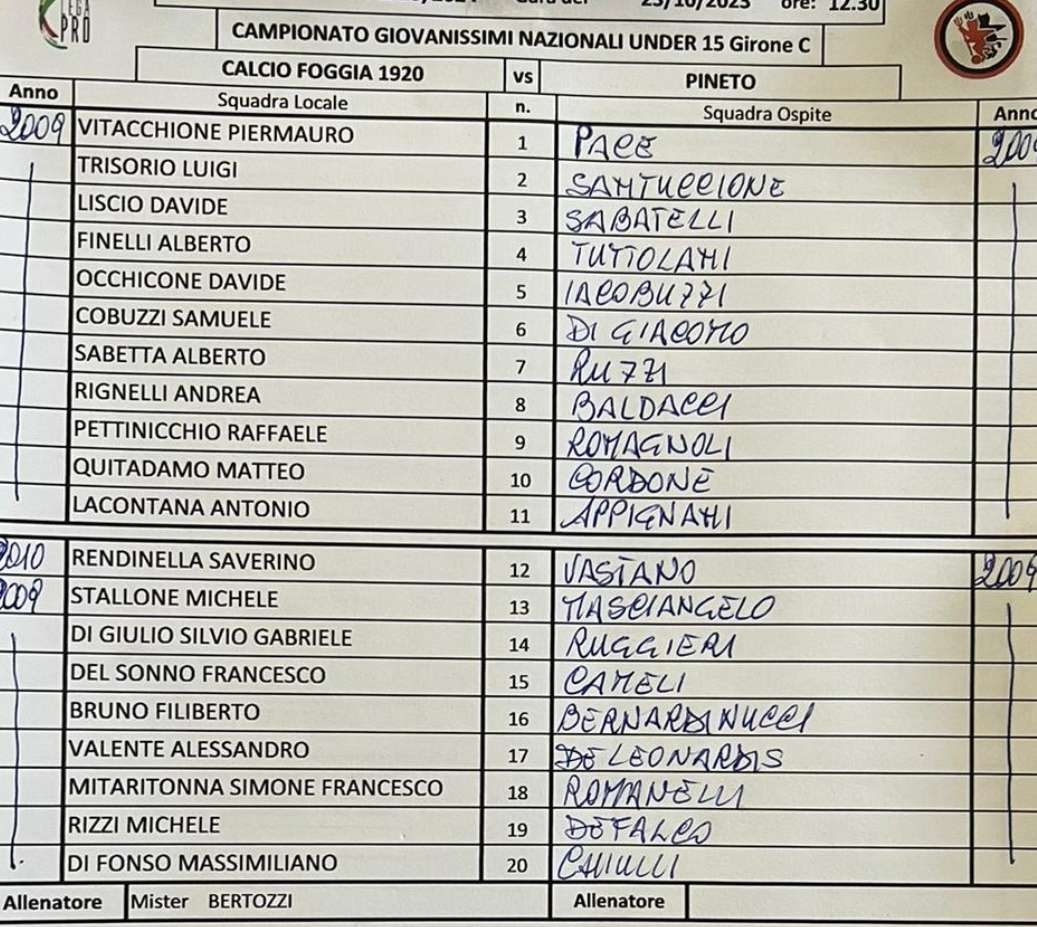 LEGA
PRO
25/10/2023 ore: 12.30
CAMPIONATO GIOVANISSIMI NAZIONALI UNDER 15 Girone C
CALCIO FOGGIA 1920 vs PINETO
Anno Squadra Locale n. Squadra Ospite Anno
2009 VITACCHIONE PIERMAURO 1 PACE 2009
TRISORIO LUIGI 2 SANTUCCIONE
LISCIO DAVIDE 3 SABATELLI
FINELLI ALBERTO 4 TUTTOLANI
OCCHICONE DAVIDE 5 IACOBUZZI
COBUZZI SAMUELE 6 DI GIACOMO
SABETTA ALBERTO 7 RUZZI
RIGNELLI ANDREA 8 BALDACCI
PETTINICCHIO RAFFAELE 9 ROMAGNOLI
QUITADAMO MATTEO 10 CORDONE
LACONTANA ANTONIO 11 APPIGNANI
2010 RENDINELLA SAVERINO 12 VASTANO 2009
2009 STALLONE MICHELE 13 MASCIANGELO
DI GIULIO SILVIO GABRIELE 14 RUGGIERI
DEL SONNO FRANCESCO 15 CAMELI
BRUNO FILIBERTO 16 BERNARDINUCCI
VALENTE ALESSANDRO 17 DE LEONARDIS
MITARITONNA SIMONE FRANCESCO 18 ROMANELLI
RIZZI MICHELE 19 DE FALCO
DI FONSO MASSIMILIANO 20 CHIULLI
Allenatore Mister BERTOZZI Allenatore